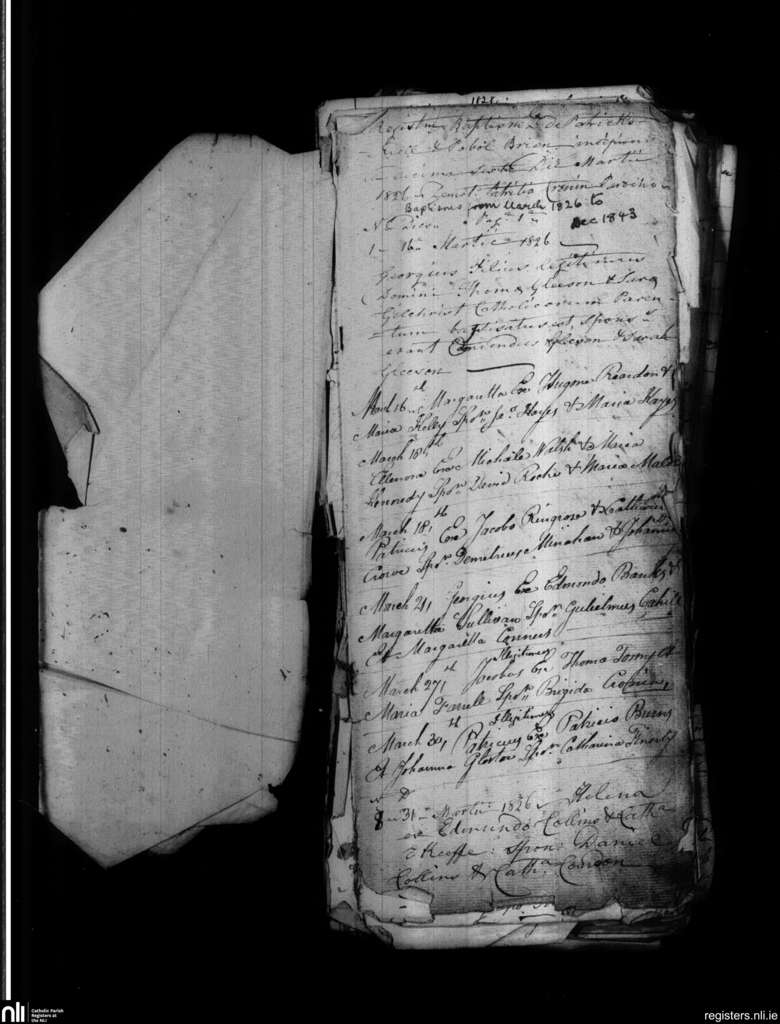 1826
Registrum Baptism de Patricks
Well & Pobol Brien incipiens
decima sexta Die Martii
1826
Baptisms from March 1826 to
Dec 1843
1 16 Martii 1826
Georgius Filius Legitimus
Domini Thoma Gleeson & Sara
Gilchrist Catholicorum Paren
tum baptisatus est, Spons
erant Edmundus Gleeson & Sarah
Gleeson
March 16 Margaretta Ex Hugone Reardon &
Maria Kelly Spon Jo Hayes & Maria Hayes
March 18th
Ellenora Exe Michaele Walsh & Maria
Kennedy Spon David Roche & Maria
March 18th
Patricius Exe Jacobo Ringrose & Catharina
Crowe Spon Demetrius Minahan & Johanna
March 21, Georgius Exe Edmundo Banks &
Margaretta Sullivan Spon Gulielmus Cahill
Et Margaretta Connors
March 27th Illegitimus Jacobus Exe Thoma
Maria Farrell Spon Brigida Cronin
March 30th Illegitimus Patricius Exe Patricio Burns
Et Johanna Spon Catharina
8 31 Martii 1826 Helena
ex Edmundo Collins & Cath
O Keeffe: Spons Daniel
Collins & Cath Condon
nli
Catholic Parish
Registers at
the NLI
registers.nli.ie